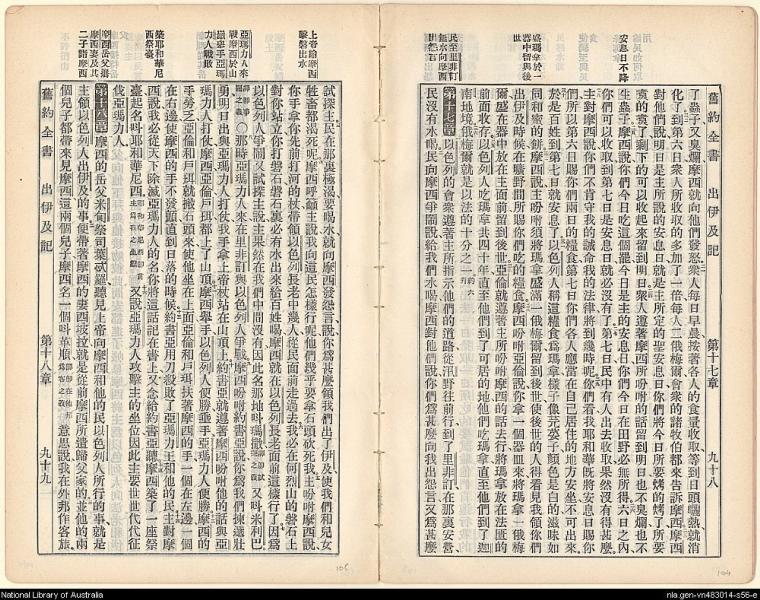 舊約全書 出伊及記 第十七章 九十八
安息日不降
盛瑪拿於一
器中留與後
世
民至里非訂
無水向摩西
出怨言
了蟲子又臭爛摩西就向他們發怒衆人每日早晨按著各人的食量收取等到日頭暄熱就消
化了到第六日衆人所收取的多加了一倍每人二俄梅爾會衆的諸牧伯都來告訴摩西摩西
對他們說明日是主所說的安息日就是主所定的聖安息日你們將今日所要烤的烤了所要
煑的煑了剩下的可以收起來留到明日衆人遵著摩西所吩咐的話留到明日也不臭爛也不
生蟲子摩西說你們今日吃這個罷今日是主的安息日你們今日在田野必無所得六日之內
你們可以收取到第七日是安息日就必沒有了第七日民中有人出去收取果然沒有得甚麼
主對摩西說你們不肯守我的誡命我的法律將到幾時呢你們看我耶和華旣將安息日賜你
們所以第六日賜你們兩日的糧食第七日你們各人應當在自己居住的地方安坐不可出來
於是百姓到第七日就安息了以色列人稱這糧食爲瑪拿樣子像芫荽子顏色是白的滋味如
同和蜜的餅摩西說主吩咐須將瑪拿盛滿一俄梅爾留到後世使後世的人得看見我領你們
出伊及時候在曠野間所賜你們吃的糧食摩西吩咐亞倫說你拿一個器皿來將瑪拿一俄梅
爾盛在器中放在主面前留到後世亞倫就遵著主所吩咐摩西的話去行將瑪拿放在法匱的
前面收存以色列人吃瑪拿共四十年直至他們到了可居的地他們吃瑪拿直至他們到了迦
南地境俄梅爾就是以法的十分之一
第十七篇 以色列的會衆遵著主所指示他們的道路從汛野往前行到了里非訂在那裏安營
民沒有水喝民向摩西爭鬧說給我們水喝摩西對他們說你們爲甚麼向我出怨言又爲甚麼
上帝命摩西
擊磐出水
亞瑪力人來
戰摩西於山
巔舉手亞瑪
力人戰敗
築耶和華尼
西祭臺
摩西岳父攜
摩西妻及其
二子詣摩西
試探主民在那裏極渴要喝水就向摩西發怨言說你爲甚麼領我們出了伊及使我們和兒女
牲畜都渴死呢摩西呼籲主說我向這民怎樣行呢他們幾乎要拿石頭砍死我主吩咐摩西說
你手拿你先前打河的杖帶領以色列長老中幾人從民面前走過去我必在何烈山的磐石上
對你站立你打磐石磐石裏必有水出來給百姓喝摩西就在以色列長老面前這樣行了因爲
以色列人爭鬧又試探主說主果然在我們中間沒有因此名那地叫瑪撒又叫米利巴
○那時亞瑪力人來在里非訂與以色列人爭戰摩西吩咐約書亞說你爲我們揀選壯
勇明日出與亞瑪力人打仗我手拿上帝杖站在山頂上約書亞就遵著摩西吩咐他的話與亞
瑪力人打仗摩西亞倫戶珥都上了山頂摩西舉手以色列人便勝垂手亞瑪力人便勝摩西的
手勞乏亞倫和戶珥就搬石頭來使他坐在上面亞倫和戶珥扶著摩西的手一個在左邊一個
在右邊使摩西的手不發顫直到日落的時候約書亞用刀殺敗了亞瑪力王和他的民主對摩
西說我必從天下除滅亞瑪力人的名你將這話記在書上又念給約書亞聽摩西築了一座祭
臺起名叫耶和華尼西又說亞瑪力人攻擊主的坐位因此主要世世代代征
伐亞瑪力人
第十八篇 摩西的岳父米甸祭司葉忒羅聽見上帝向摩西和他的民以色列人所行的事就是
主領以色列人出伊及的事便帶著摩西的妻西坡拉就是從前摩西所遣歸父家的並他的兩
個兒子都帶來見摩西這兩個兒子摩西名一個叫革順意思說我在外邦作客旅
舊約全書 出伊及記 第十八章 九十九
National Library of Australia
nla.gen-vn483014-s56-e